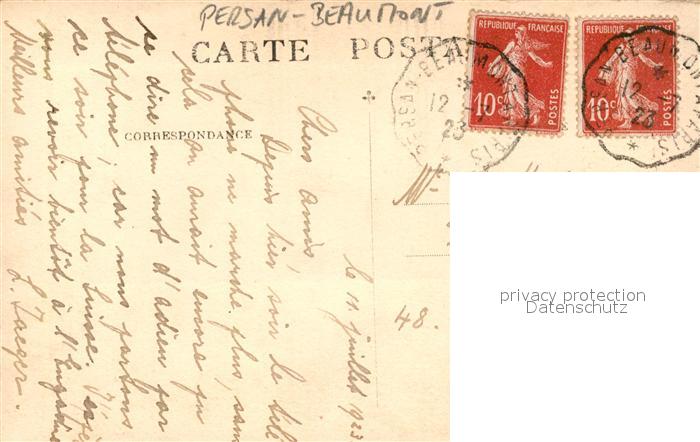 PERSAN-BEAUMONT
CARTE POSTA
REPUBLIQUE FRANÇAISE
10c POSTES
REPUBLIQUE FRANÇAISE
10c POSTES
12 -7
23
12 -7
23
CORRESPONDANCE
le 11 juillet 1923
Chers amis
Depuis hier soir le télé
phone ne marche plus, sans
cela on aurait encore pu
se dire un mot d'adieu par
téléphone, car nous partons
ce soir pour la Suisse.
vous revoir bientôt à l'Engadine
Meilleurs amitiés L. Jaeger.
48.
privacy protection
Datenschutz